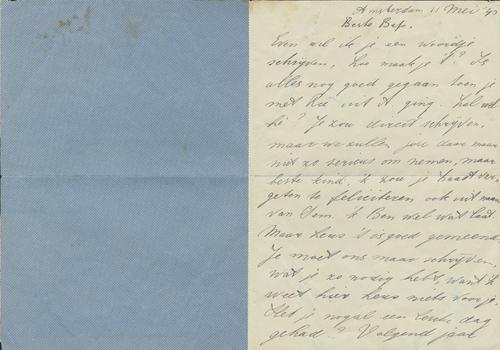 Amsterdam 11 Mei '43
Beste Bep.
Even wil ik je een woordje
schrijven, hoe maak je 't? Is
alles nog goed gegaan toen je
met Rie uit A ging. Zal wel
hè? Je zou direct schrijven,
maar we zullen jou daar maar
niet zo serieus om nemen, maar
beste kind, ik zou je haast ver-
geten te feliciteren ook uit naam
van Dem. ik Ben wel wat laat
Maar heus 't is goed gemeend
Je moet ons maar schrijven,
wat je zo nodig hebt, want ik
weet hier heus niets voor je.
Heb je nogal een leuke dag
gehad? Volgend jaar